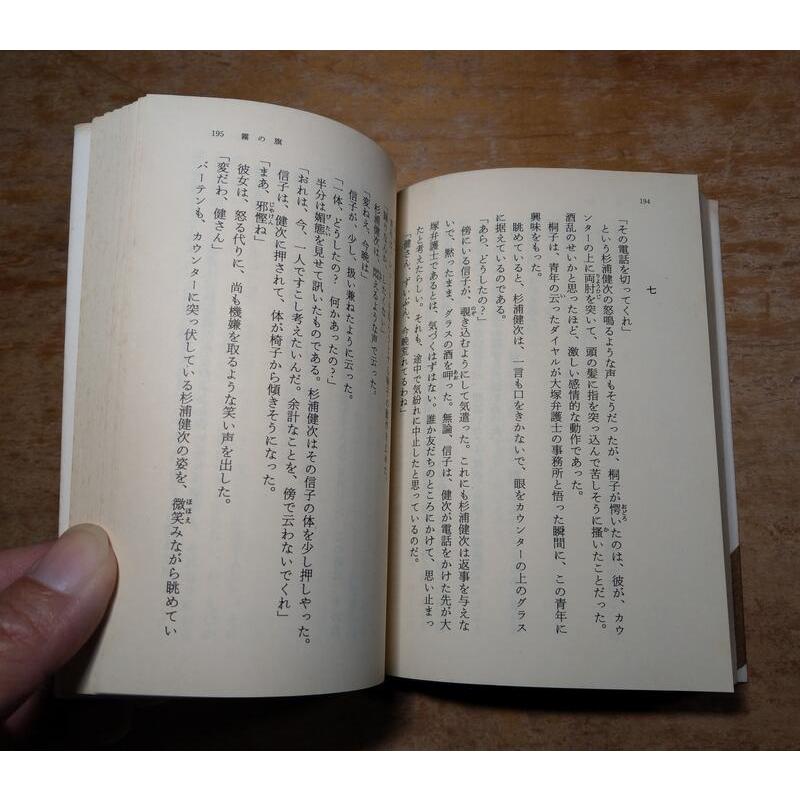 194
七
「その電話を切ってくれ」
という杉浦健次の怒鳴るような声もそうだったが、桐子が愕いたのは、彼が、カウ
ンターの上に両肘を突いて、頭の髪に指を突っ込んで苦しそうに掻いたことだった。
酒乱のせいかと思ったほど、激しい感情的な動作であった。
桐子は、青年の云ったダイヤルが大塚弁護士の事務所と悟った瞬間に、この青年に
興味をもった。
眺めていると、杉浦健次は、一言も口をきかないで、眼をカウンターの上のグラス
に据えているのである。
「あら、どうしたの?」
傍にいる信子が、覗き込むようにして気遣った。これにも杉浦健次は返事を与えな
いで、黙ったまま、グラスの酒を呷った。無論、信子は、健次が電話をかけた先が大
塚弁護士であるとは、気づくはずはない。誰か友だちのところにかけて、思い止まっ
たと考えたらしい。それも、途中で気紛れに中止したと思っているのだ。
「健さん、ずいぶん、今晩荒れてるわね」
195 霧の旗
杉浦健次は、悶えるような声で云った。
「変ねえ、今晩は」
信子が、少し、扱い兼ねたように云った。
「一体、どうしたの? 何かあったの?」
半分は媚態を見せて訊いたものである。杉浦健次はその信子の体を少し押しやった。
「おれは、今、一人ですこし考えたいんだ。余計なことを、傍で云わないでくれ」
信子は、健次に押されて、体が椅子から傾きそうになった。
「まあ、邪慳ね」
彼女は、怒る代りに、尚も機嫌を取るような笑い声を出した。
「変だわ、健さん」
バーテンも、カウンターに突っ伏している杉浦健次の姿を、微笑みながら眺めてい